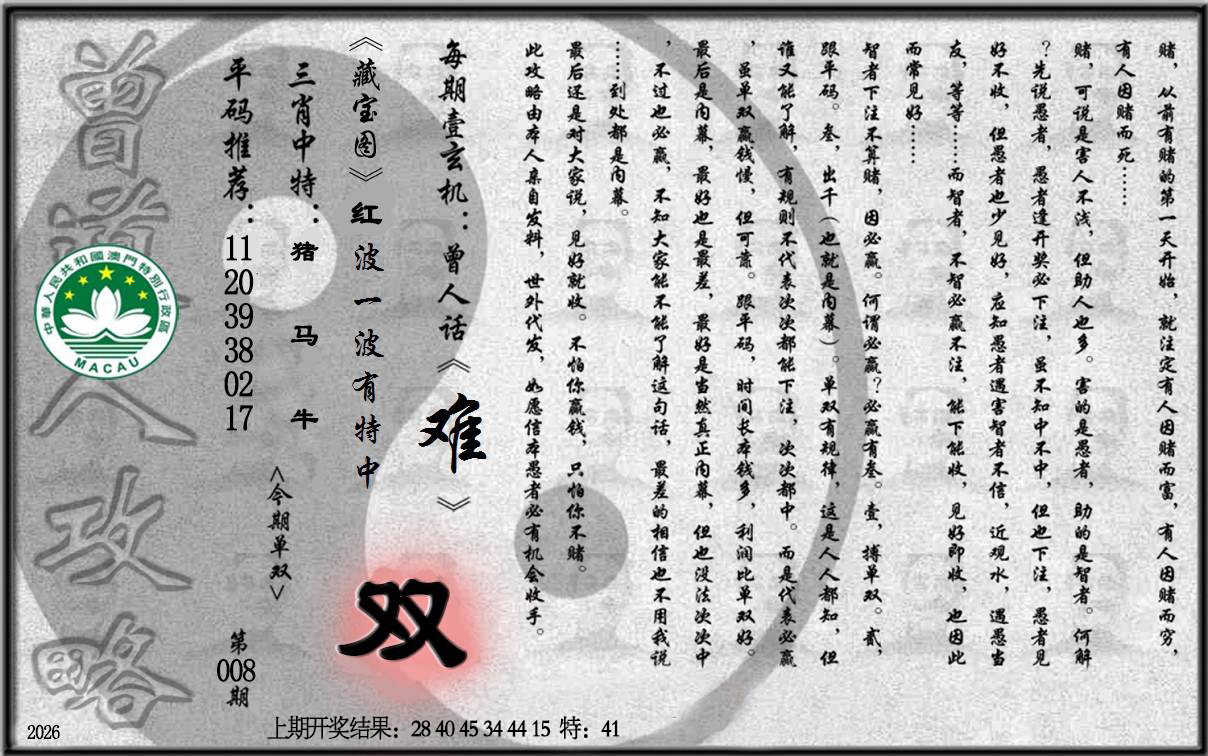 赌，从前有赌的第一天开始，就注定有人因赌而富，有人因赌而穷，
有人因赌而死……
赌，可说是害人不浅，但助人也多。害的是愚者，助的是智者。何解
？先说愚者，愚者逢开奖必下注，虽不知中不中，但也下注，愚者见
好不收，但愚者也少见好，应知愚者遇害智者不信，近观水，遇愚当
友，等等……而智者，不智必赢不注，能下能收，见好即收，也因此
而常见好……
智者下注不算赌，因必赢。何谓必赢？必赢有叁。壹，搏单双。贰，
跟平码。叁，出千（也就是内幕）。单双有规律，这是人人都知，但
谁又能了解，有规则不代表次次都能下注，次次都中。而是代表必赢
，虽单双赢钱慢，但可靠。跟平码，时间长本钱多，利润比单双好。
最后是内幕，最好也是最差，最好是当然真正内幕，但也没法次次中
，不过也必赢，不知大家能不能了解这句话，最差的相信也不用我说
……到处都是内幕。
最后还是对大家说，见好就收。不怕你赢钱，只怕你不赌。
此攻略由本人亲自发料，世外代发，如愿信本愚者必有机会收手。
每期壹玄机：曾人话《难》
《藏宝图》红波一波有特中
双
三肖中特：猪 马 牛
<今期单双>
平码推荐：11 20 39 38 02 17
第008期
曾道人攻略
中華人民共和國澳門特別行政區
MACAU
2026
上期开奖结果：28 40 45 34 44 15 特：41